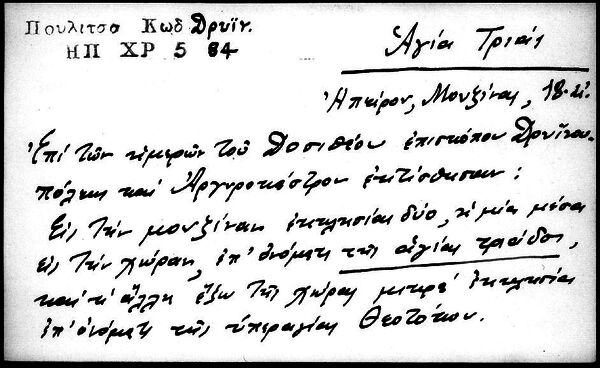 Πουλιτσα Κωδ Δρυϊν.
ΗΠ ΧΡ 5 84
Ἁγία Τριάς
Ἠπείρου, Μουζίνας, 18 αἰ.
Ἐπί τῶν ἡμερῶν τοῦ Δοσιθέου ἐπισκόπου Δρυϊνου-
πόλεως καί Ἀργυροκάστρου ἐκτίσθησαν:
Εἰς τήν μουζίναν ἐκκλησίαι δύο, ἡ μία μέσα
εἰς τήν χώραν, ἐπ' ὀνόματι τῆς ἁγίας τριάδος,
καί ἡ ἄλλη ἔξω τῆς χώρας μετρέ ἐκκλησία
ἐπ' ὀνόματι τῆς ὑπεραγίας Θεοτόκου.